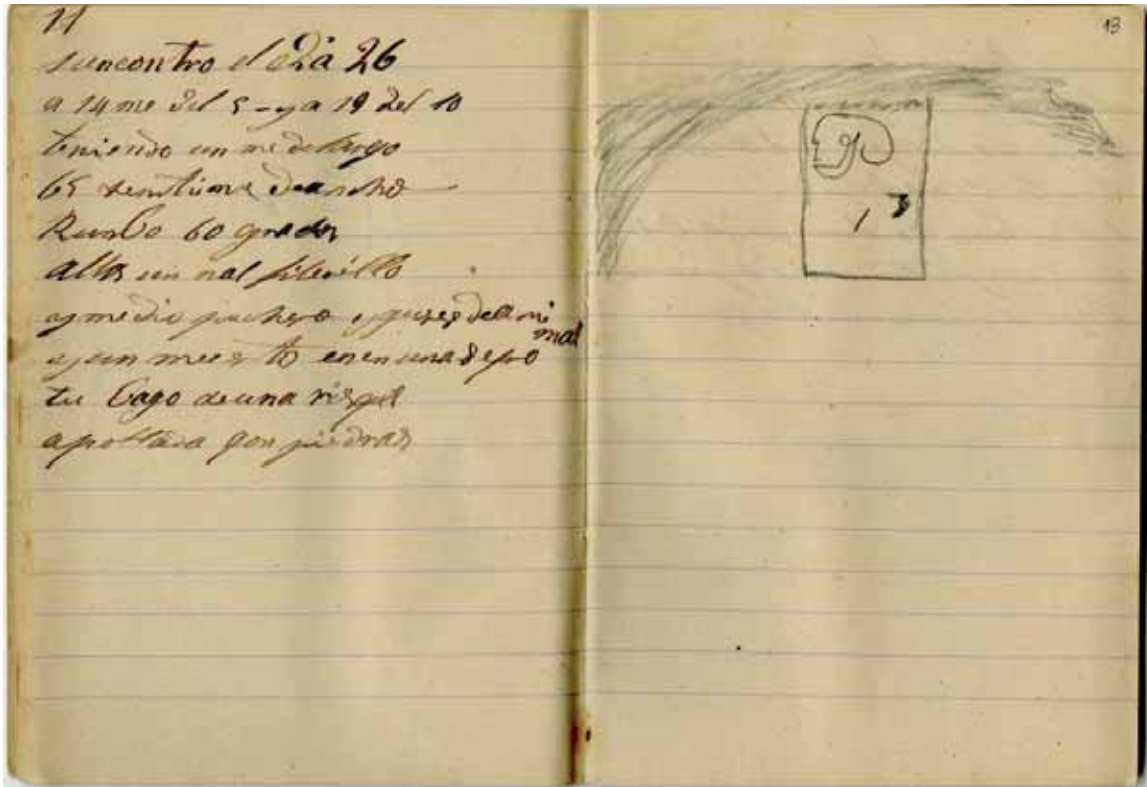 11
sancontro el dia 26
a 14 me del 5 - y a 19 del 10
teniendo un me de largo
65 sentime de ancho
Rumbo 60 grados
allos un nal
y medio puchero y gueses del ani
mal
y un mueṛto en en una sepo
tu bago de una
apollada gon piedras
13
1 3